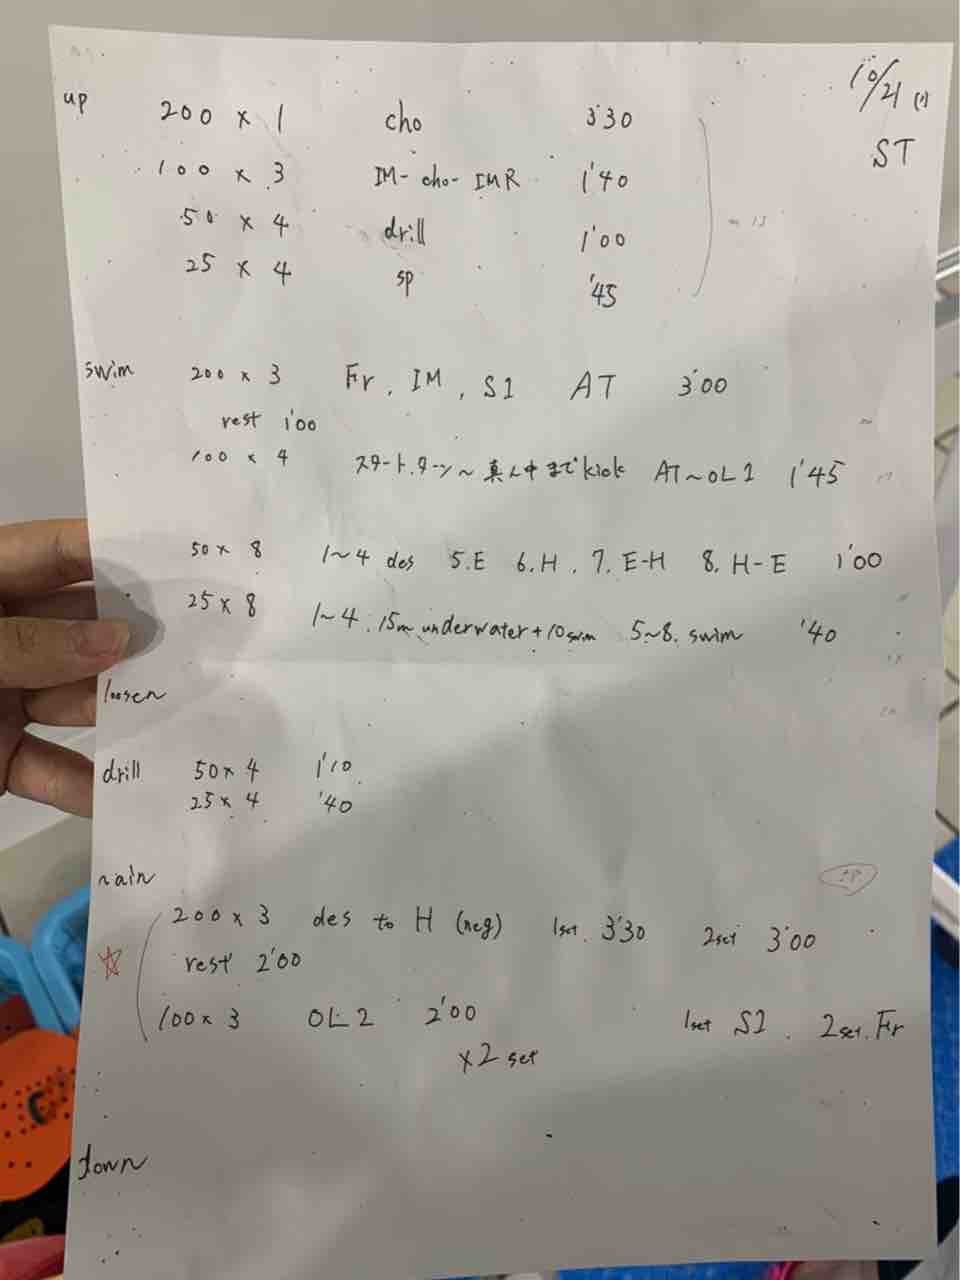 10/21
ST
up 200 × 1 cho 3'30
100 × 3 IM- cho- IMR 1'40
50 × 4 drill 1'00
25 × 4 sp '45
swim 200 × 3 Fr, IM, S1 AT 3'00
rest 1'00
100 × 4 スタート,ターン~真ん中までkick AT~OL1 1'45
50 × 8 1~4 des 5.E 6.H. 7. E-H 8. H-E 1'00
25 × 8 1~4. 15m underwater + 10swim 5~8. swim '40
loosen
drill 50 × 4 1'10
25 × 4 '40
main
200 × 3 des to H (neg) 1set. 3'30 2set 3'00
rest 2'00
100 × 3 OL2 2'00 1set S1. 2set. Fr
×2 set
down